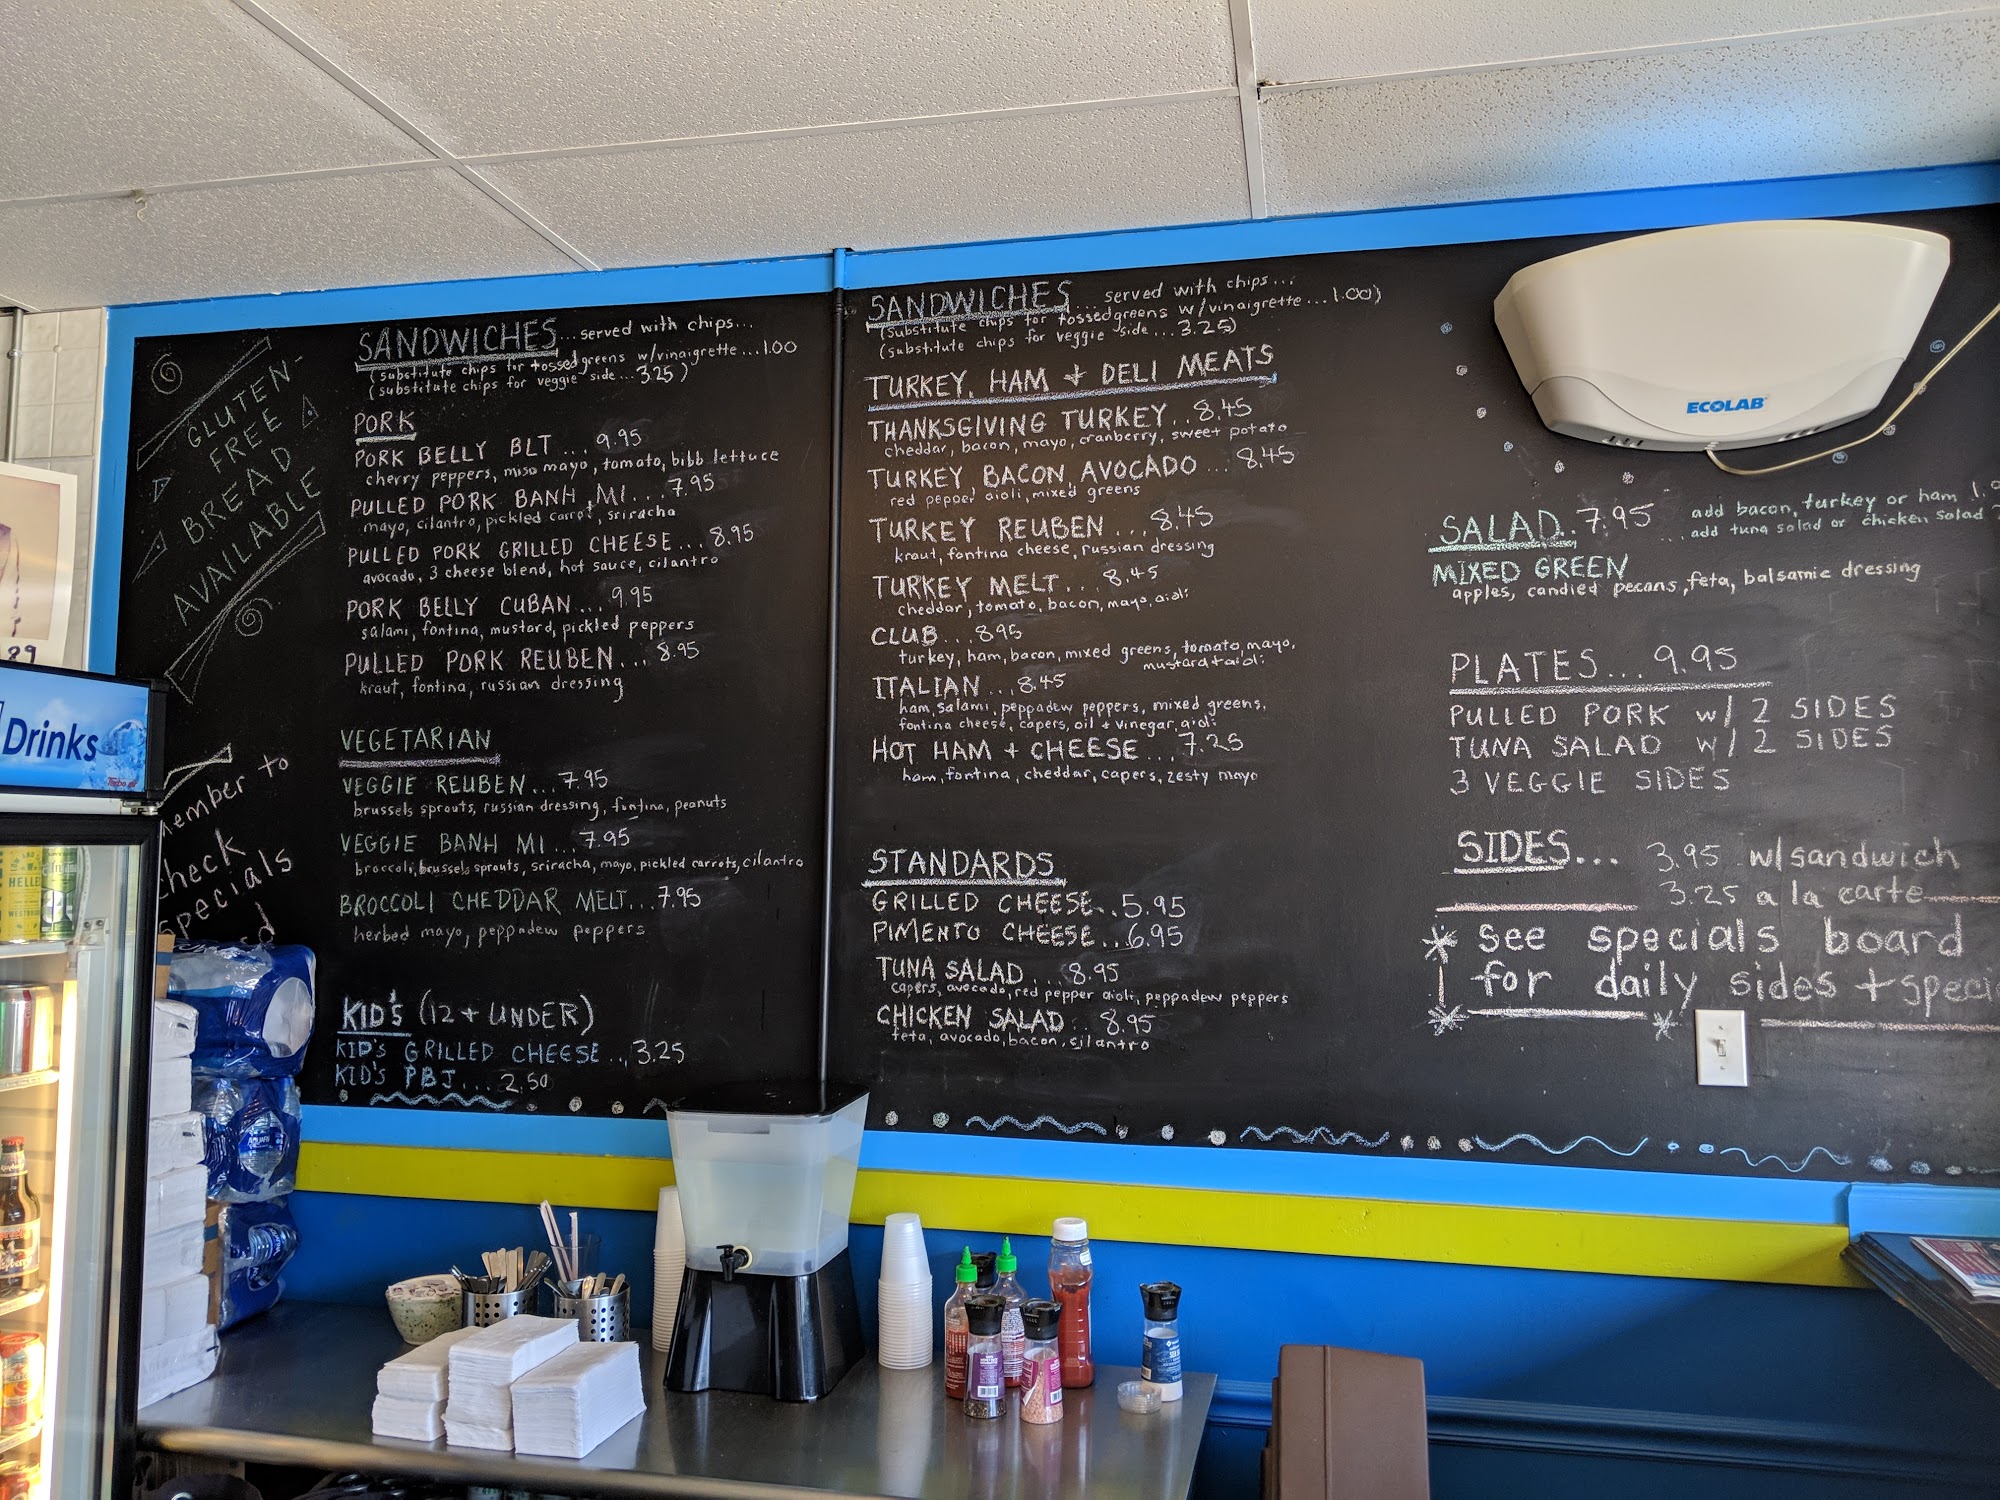 GLUTEN-
FREE
BREAD
AVAILABLE
member to
check
specials
SANDWICHES...served with chips...
(substitute chips for tossed greens w/vinaigrette...1.00
(substitute chips for veggie side...3.25)
PORK
PORK BELLY BLT...9.95
cherry peppers, miso mayo, tomato, bibb lettuce
PULLED PORK BANH MI...7.95
mayo, cilantro, pickled carrot, sriracha
PULLED PORK GRILLED CHEESE...8.95
avocado, 3 cheese blend, hot sauce, cilantro
PORK BELLY CUBAN...9.95
salami, fontina, mustard, pickled peppers
PULLED PORK REUBEN...8.95
kraut, fontina, russian dressing
VEGETARIAN
VEGGIE REUBEN...7.95
brussels sprouts, russian dressing, fontina, peanuts
VEGGIE BANH MI...7.95
broccoli, brussels sprouts, sriracha, mayo, pickled carrots, cilantro
BROCCOLI CHEDDAR MELT...7.95
herbed mayo, peppadew peppers
KID'S (12 + UNDER)
KID'S GRILLED CHEESE...3.25
KID'S PBJ...2.50
SANDWICHES...served with chips...
(substitute chips for tossed greens w/vinaigrette...1.00)
(substitute chips for veggie side...3.25)
TURKEY, HAM + DELI MEATS
THANKSGIVING TURKEY...8.45
cheddar, bacon, mayo, cranberry, sweet potato
TURKEY, BACON, AVOCADO...8.45
red pepper aioli, mixed greens
TURKEY REUBEN...8.45
kraut, fontina cheese, russian dressing
TURKEY MELT...8.45
cheddar, tomato, bacon, mayo, aioli
CLUB...8.95
turkey, ham, bacon, mixed greens, tomato, mayo,
mustard + aioli
ITALIAN...8.45
ham, salami, peppadew peppers, mixed greens,
fontina cheese, capers, oil + vinegar, aioli
HOT HAM + CHEESE...7.25
ham, fontina, cheddar, capers, zesty mayo
STANDARDS
GRILLED CHEESE...5.95
PIMENTO CHEESE...6.95
TUNA SALAD...8.95
capers, avocado, red pepper aioli, peppadew peppers
CHICKEN SALAD...8.95
feta, avocado, bacon, cilantro
ECOLAB
SALAD...7.95
add bacon, turkey or ham
...add tuna salad or chicken salad
MIXED GREEN
apples, candied pecans, feta, balsamic dressing
PLATES...9.95
PULLED PORK w/ 2 SIDES
TUNA SALAD w/ 2 SIDES
3 VEGGIE SIDES
SIDES... 3.95 w/sandwich
3.25 a la carte
see specials board
for daily sides + speci
89
Drinks
HELLE